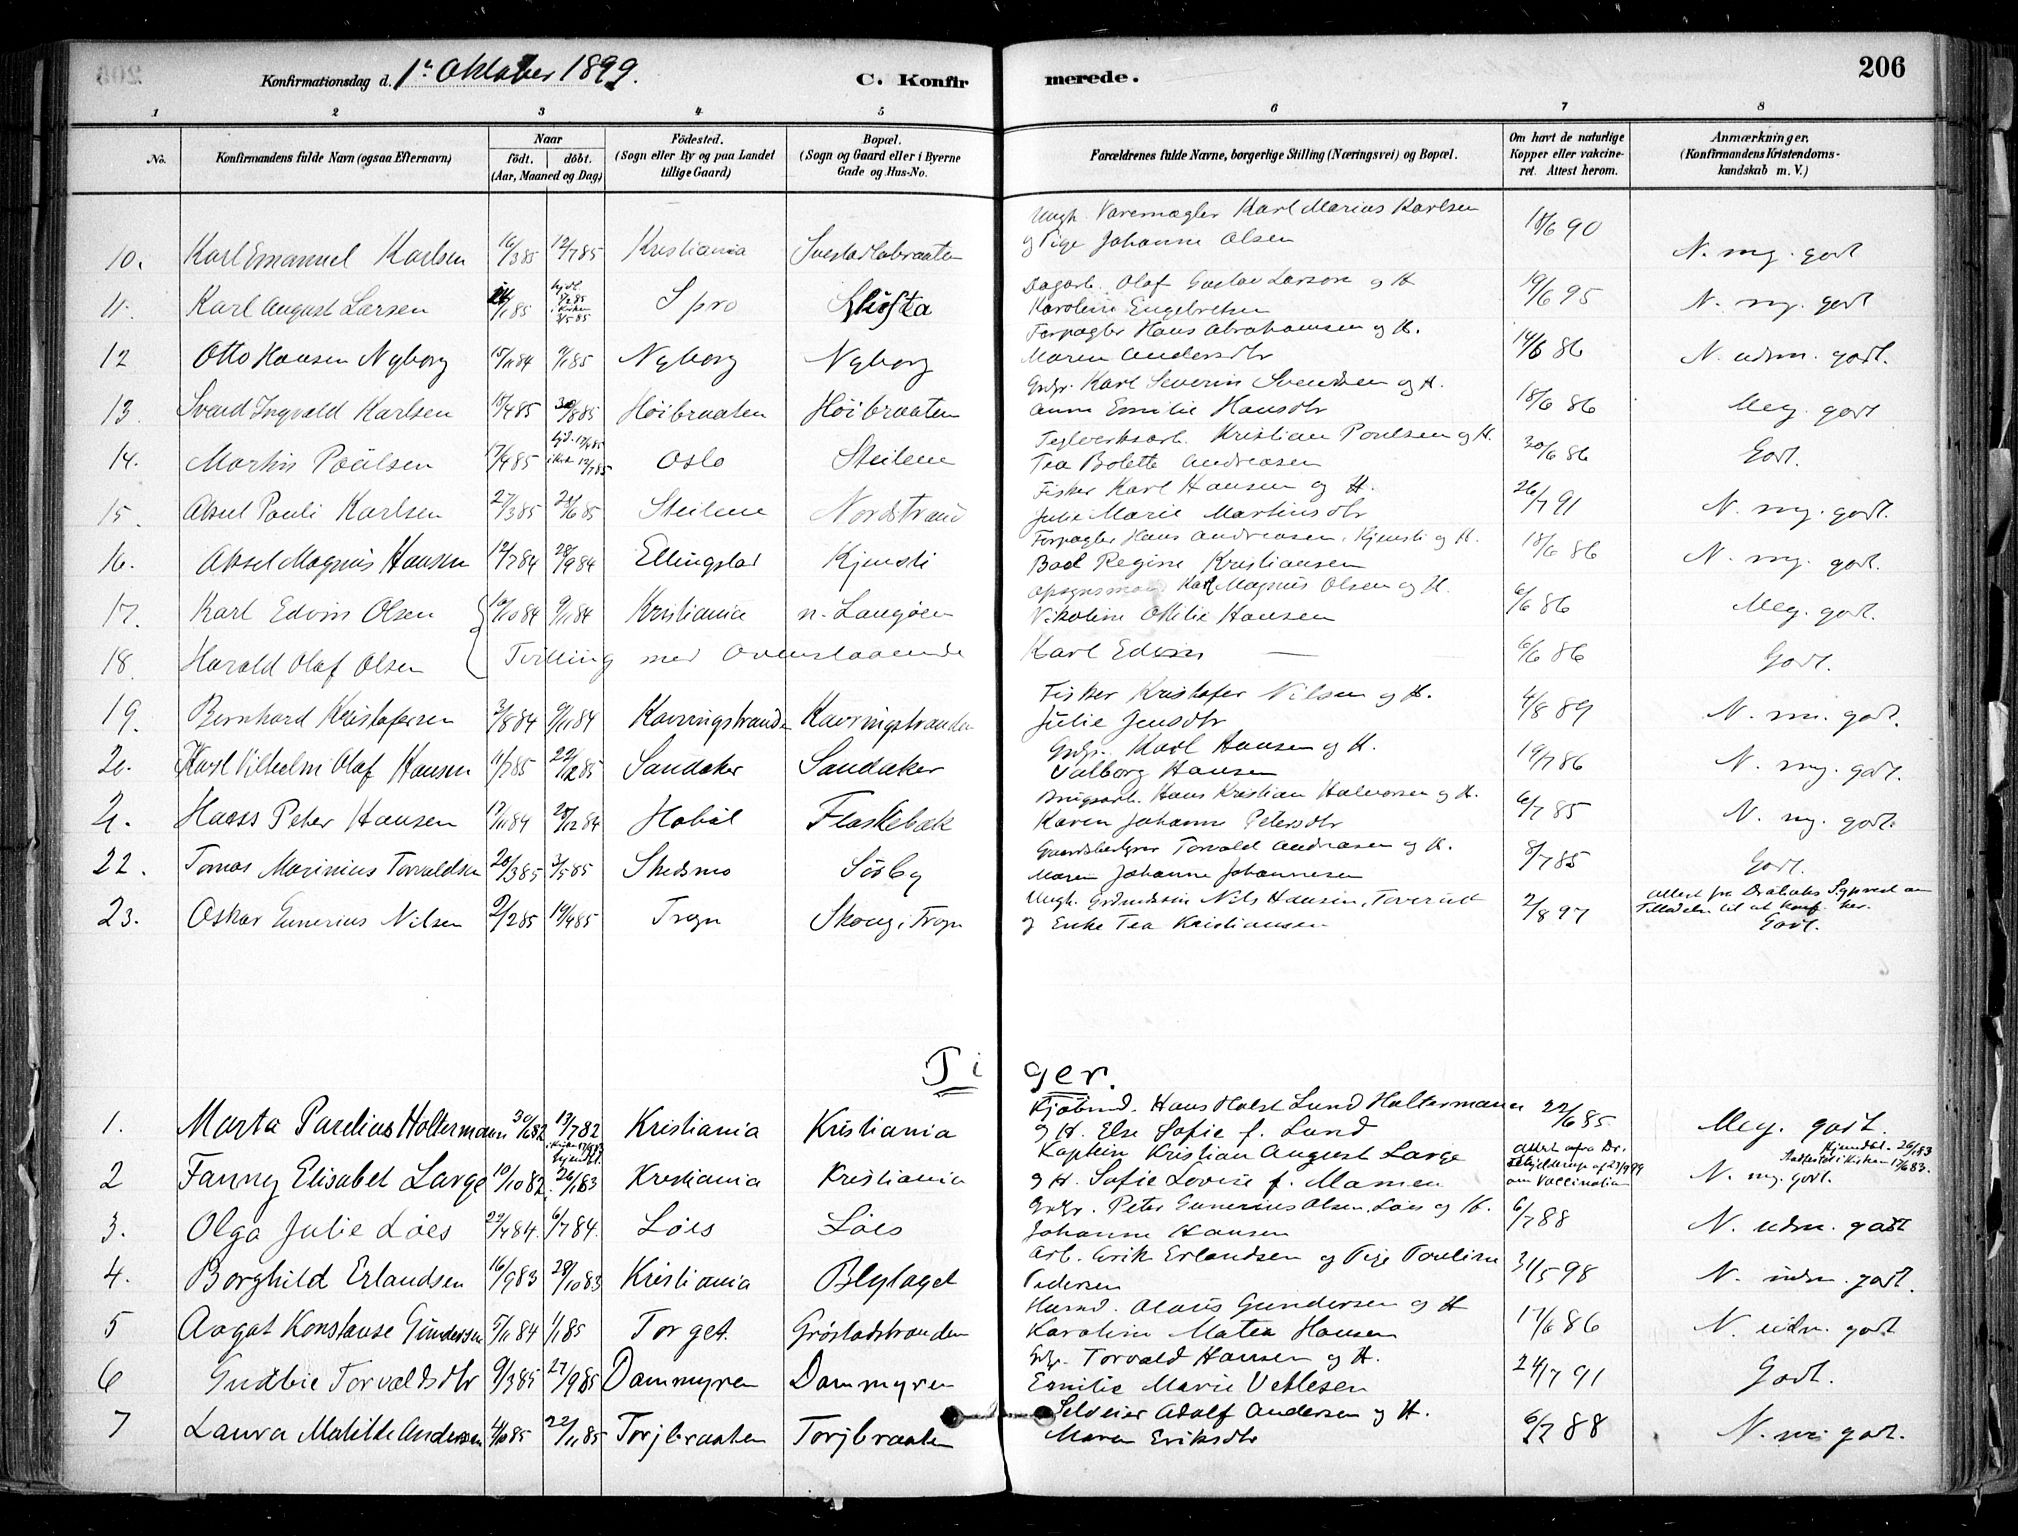 Konfirmationsdag d. 1ste Oktober 1899.
C. Konfirmerede.
206
1 2 3 4 5 6 7 8
No.
Konfirmandens fulde Navn (ogsaa Efternavn)
Naar
født. døbt.
(Aar, Maaned og Dag)
Födested.
(Sogn eller By og paa Landet
tillige Gaard)
Bopæl.
(Sogn og Gaard eller i Byerne
Gade og Hus-No.
Forældrenes fulde Navne, borgerlige Stilling (Næringsvei) og Bopæl.
Om havt de naturlige
Kopper eller vakcine-
ret. Attest herom.
Anmærkninger.
(Konfirmandens Kristendoms-
kundskab m. V.)
Ungk. Varemægler Karl Marius Karlsen
10. Karl Emanuel Karlsen 16/3 85 12/7 85 Kristiania Svestadbraaten og Pige Johanne Olsen 18/6 90 N. mg. godt
Dagarb. Olaf Gustav Larsen og H
11. Karl August Larsen Spro Karoline Engebretsen 19/6 95 N. mg. godt
Forpagter Hans Abrahamsen og H.
12 Otto Hansen Nyborg 15/11 84 9/1 85 Nyborg Nyborg Maren Andersdtr 14/6 86 N. udm. godt.
Grdbr. Karl Severin Svendsen og H.
13 Svend Ingvald Karlsen 15/4 85 30/8 85 Høibraaten Høibraaten Anne Emilie Hansdtr 18/6 86 Meg. godt
Teglverksarb. Kristian Poulsen og H.
14. Martin Poulsen 17/4 85 Oslo Steilene Tea Bolette Andreasen 30/6 86 Godt.
Fisker Karl Hansen og H.
15. Aksel Pauli Karlsen 27/3 85 21/6 85 Steilene Nordstrand Julie Marie Martinsdtr 26/7 91 N. mg. godt.
Forpagter Hans Andreasen, Kjensli og H.
16. Aksel Magnus Hansen 12/7 84 28/9 84 Ellingstad Kjensli Regine Kristiansen 18/6 86 N. mg. godt.
Opsynsmand Karl Magnus Olsen og H.
17. Karl Edvin Olsen 10/10 84 9/11 84 Kristiania n. Langøen Nikoline Otilie Hansen 6/6 86 Meg. godt.
18. Harald Olaf Olsen Tvilling med Ovenstaaende Karl Edvin — 6/6 86 Godt.
Fisker Kristofer Nilsen og H.
19. Bernhard Kristofersen 3/8 84 9/11 84 Kavringstranden Kavringstranden Julie Jensdtr 4/8 89 N. mg. godt.
Grdbr. Karl Hansen og H.
20. Karl Vilhelm Olaf Hansen 11/7 85 22/12 85 Sandaker Sandaker Valborg Hansen 19/7 86 N. mg. godt.
Brugsarb. Hans Kristian Halvorsen og H.
21. Hans Peter Hansen 17/11 84 28/12 84 Hobøl Flaskebæk Karen Johanne Petersdtr 6/7 85 N. mg. godt.
Gaardsbestyrer Torvald Andreasen og H.
22. Tomas Marinius Torvaldsen 20/3 85 3/5 85 Skedsmo Sörby Maren Johanne Johannesen 8/7 85 Godt.
Ungk. Grdmdssøn Nils Hansen, Toverud
23. Oskar Gunerius Nilsen 2/2 85 19/4 85 Frogn Skoug i Frogn og Enke Tea Kristiansen 2/8 97
Attest fra Drøbaks Sognprest om
Tilladelse til at konf. her.
Godt.
Piger.
Kjøbmd. Hans Holst Lund Holtermann
1. Marta Parelius Holtermann 30/1 82 13/7 82 Kristiania Kristiania og H. Else Sofie f. Lund 22/6 85 Meg. godt.
Kaptein Kristian August Lange
2 Fanny Elisabet Lange 10/10 82 26/1 83 Kristiania Kristiania og H. Sofie Lovise f. Mamen
Attest fra Dr.
om Vaccination
Hjemdøbt 26/1 83
Stadfestet i Kirken 17/6 83.
N. mg. godt.
Grdbr. Peter Gunerius Olsen, Løes og H.
3. Olga Julie Løes 29/4 84 6/7 84 Løes Løes Johanne Hansen 6/7 88 N. udm. godt
Arb. Erik Erlandsen og Pige Pauline
4. Borghild Erlandsen 16/9 83 28/10 83 Kristiania Blylaget Pedersen 31/5 98 N. udm. godt.
Husmd. Olaus Gundersen og H
5 Aagot Konstanse Gundersen 5/11 84 1/1 85 Torget Gröstadstranden Karoline Matea Hansen 17/6 86 N. udm. godt
Grdbr. Torvald Hansen og H.
6 Gudbie Torvaldsdtr 9/3 85 27/9 85 Dammyren Dammyren Emilie Marie Vetlesen 24/7 91 Godt.
Selveier Adolf Andersen og H.
7 Laura Matilde Andersen 4/10 85 22/11 85 Torjbraaten Torjbraaten Maren Eriksdtr 6/7 88 N. mg godt.